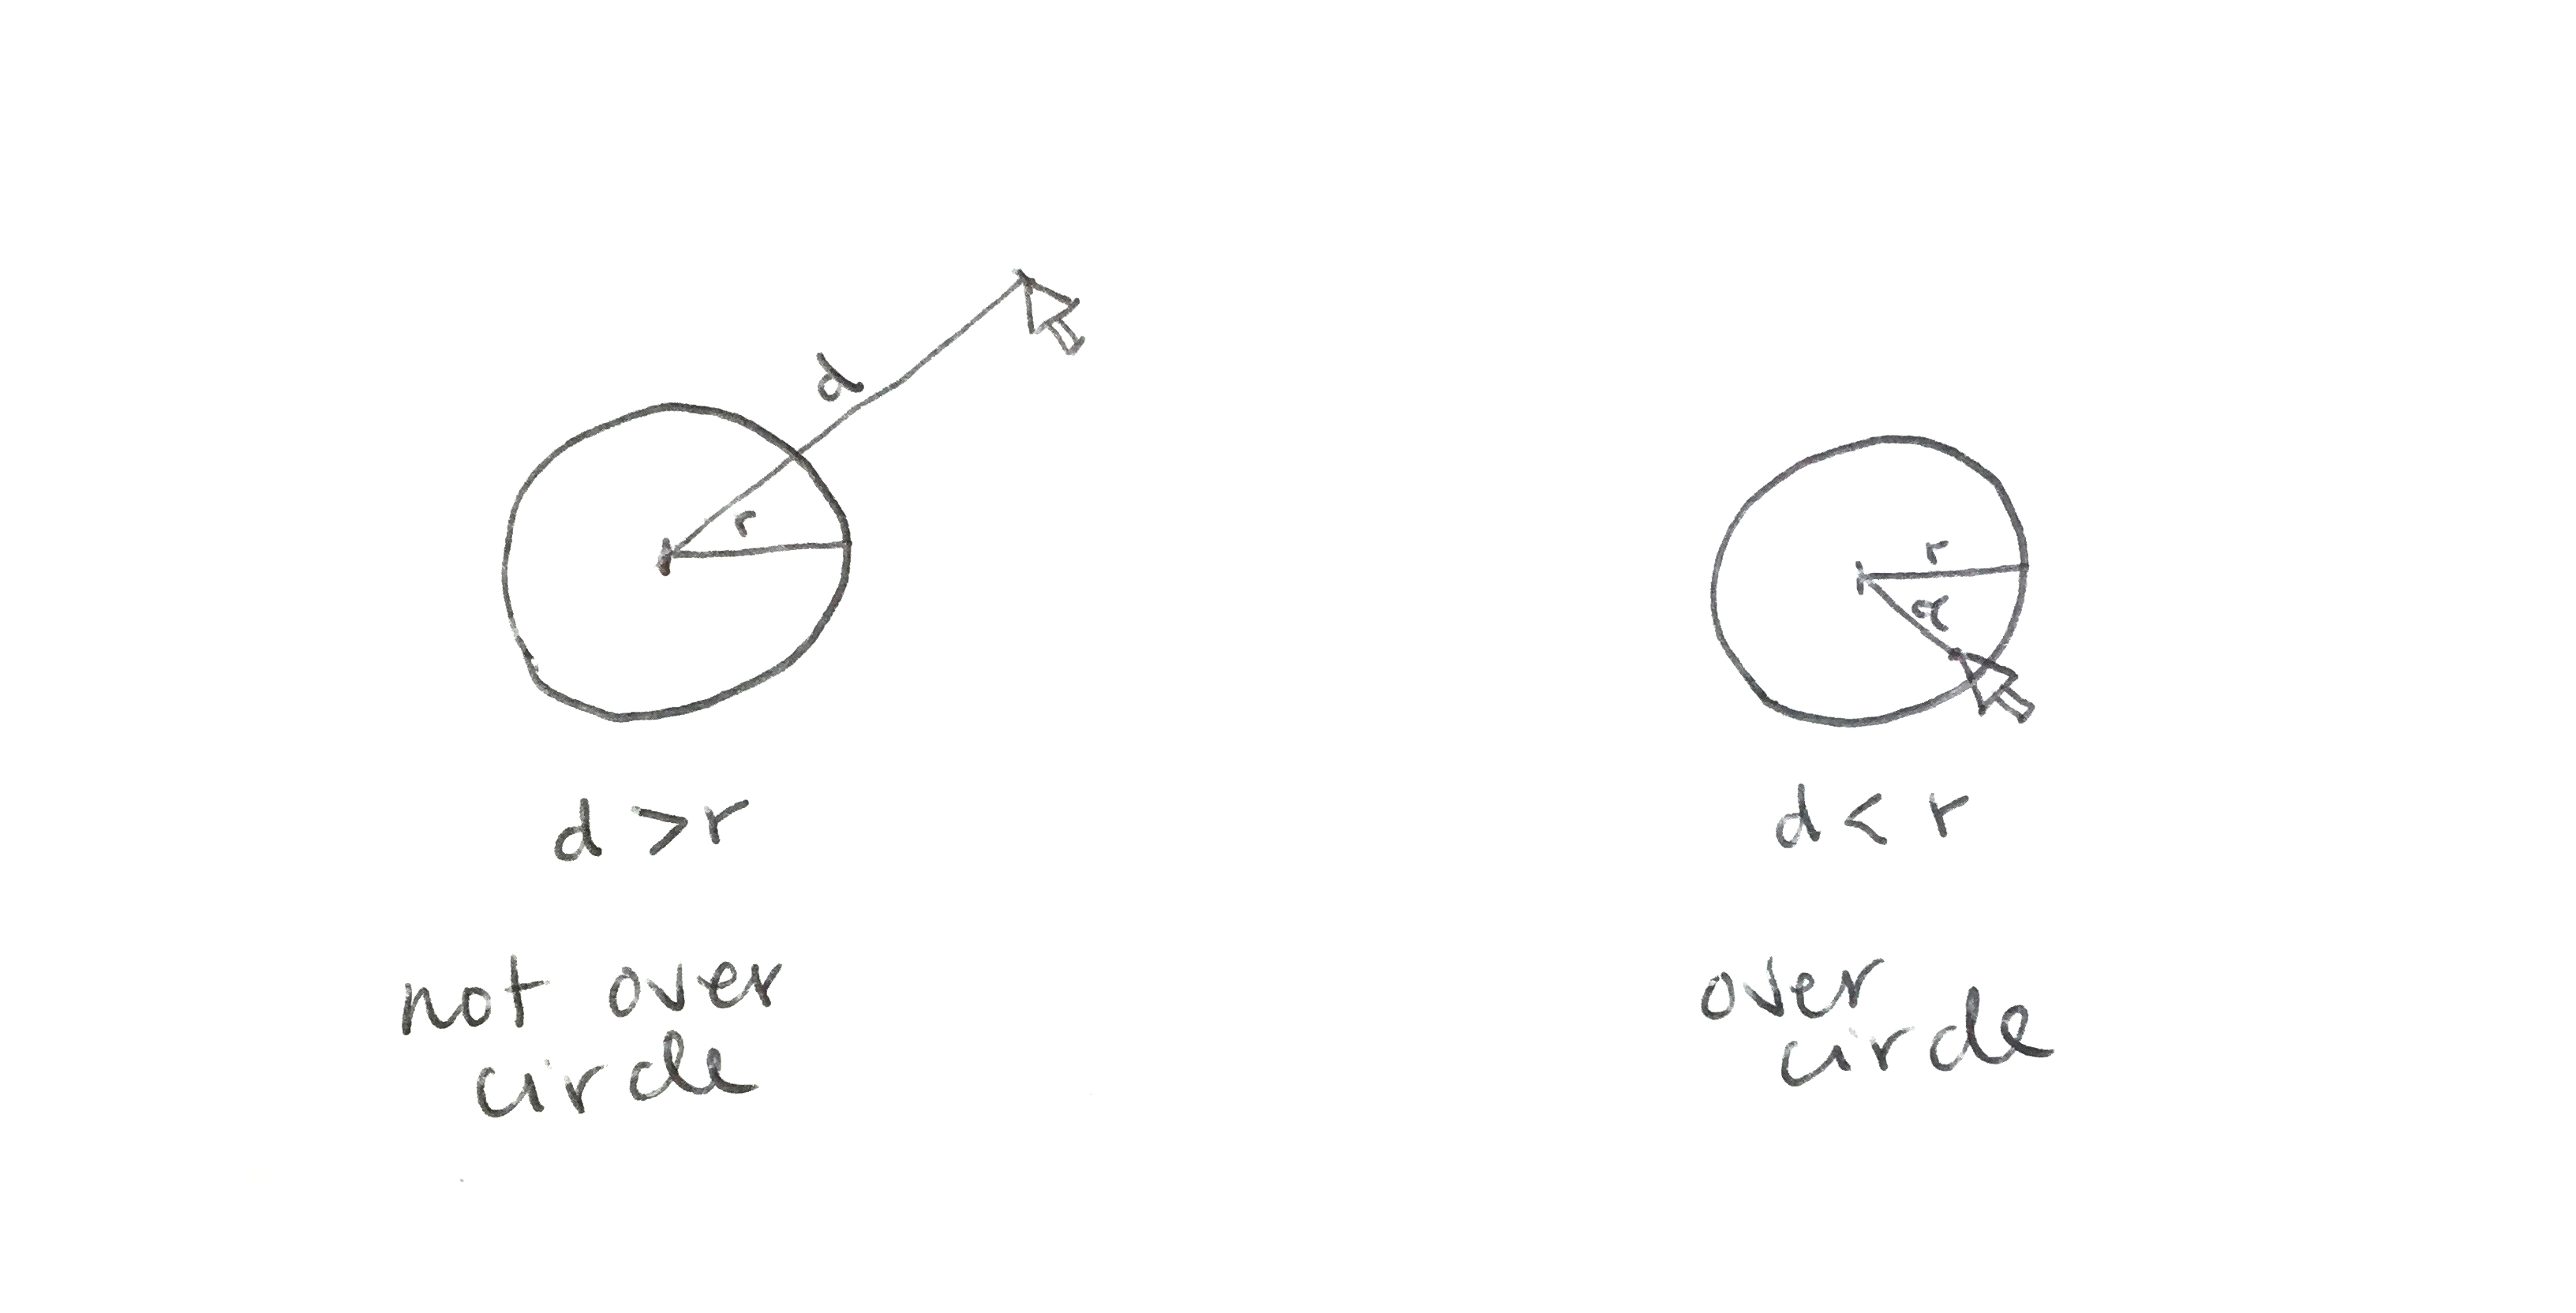 d
r
d > r
not over
circle
r
d
d < r
over
circle